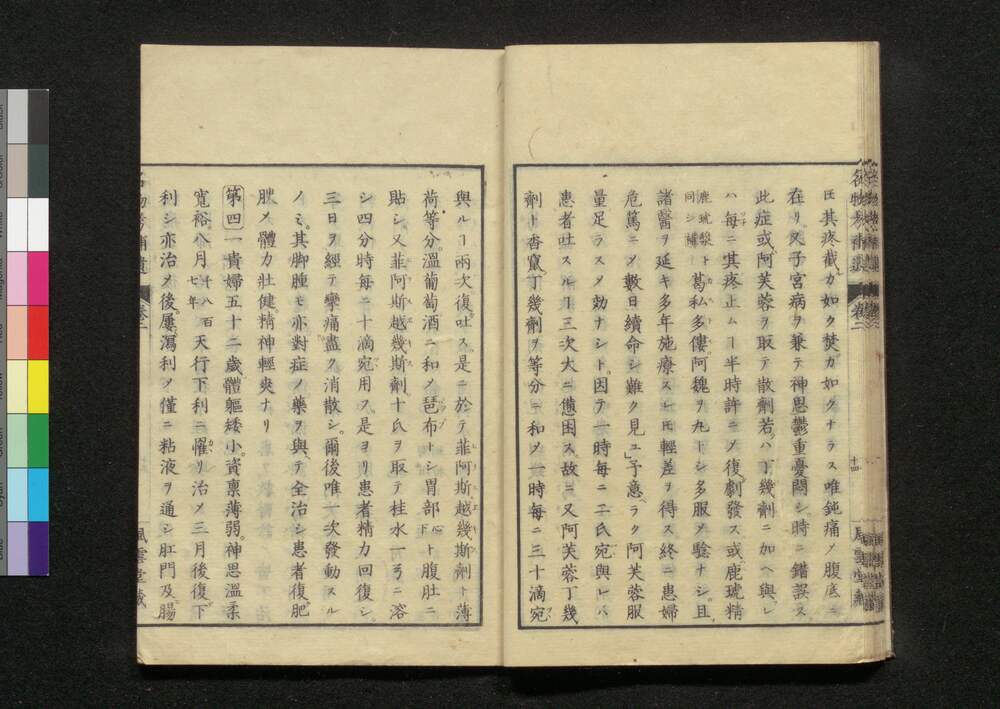 㕥其疼截カ如ク焚カ如クナラス唯鈍痛ノ腹底ニ
在リ又子宮病ヲ兼テ神思鬱重憂悶シ時ニ錯誤ス
此症或ハ阿芙蓉ヲ取テ散劑若ハ丁幾劑ニ加ヘ與レ
ハ每ニ其疼止ムヿ半時許ニメ復劇發ス或ハ鹿琥精
鹿琥漿ト
同シ 補
葛私多僂阿魏ヲ丸トシ多服メ驗ナシ且
諸醫ヲ延キ多年施療スレ㕥輕差ヲ得ス終ニ患婦
危篤ニメ數日續命シ難ク見ユ予意ヘラク阿芙蓉服
量足ラスメ効ナシト因テ一時每ニ二氏宛與レハ
患者吐スルヿ三次大ニ憊困ス故ニ又阿芙蓉丁幾
劑ト杏竄丁幾劑ヲ等分ニ和メ一時每ニ三十滴宛
十四
與ルヿ兩次復吐ス是ニ於テ菲阿斯越幾斯劑ト薄
荷等分溫葡萄酒ニ和メ琶布トシ胃部心下ト腹肚ニ
貼シ又菲阿斯越幾斯劑十氏ヲ取テ桂水一弓ニ溶
シ四分時每ニ十滴宛用フ是ヨリ患者精力回復シ
三日ヲ經テ攣痛盡ク消散シ爾後唯一次發動スル
ノミ其脚腫モ亦對症ノ藥ヲ與テ全治シ患者復肥
腴メ體力壯健精神輕爽ナリ
第四 一貴婦五十二歲體軀矮小資稟薄弱神思溫柔
寬裕八月
千八百
七年
天行下利ニ罹リ治メ三月後復下
利シ亦治メ後屢瀉利メ僅ニ粘液ヲ通シ肛門及腸
名物考補遺
卷二
風雲堂藏